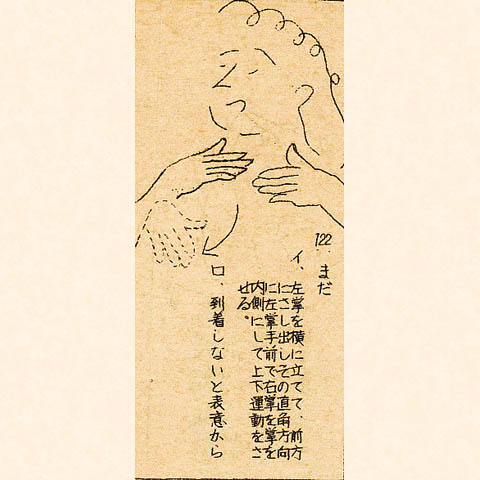 122. まだ
イ、左掌を横に立てて、前方
にさし出しその直角方向
に左掌手前で右掌を掌を
内側にして上下運動をさ
せる。
ロ、到着しないと表意から